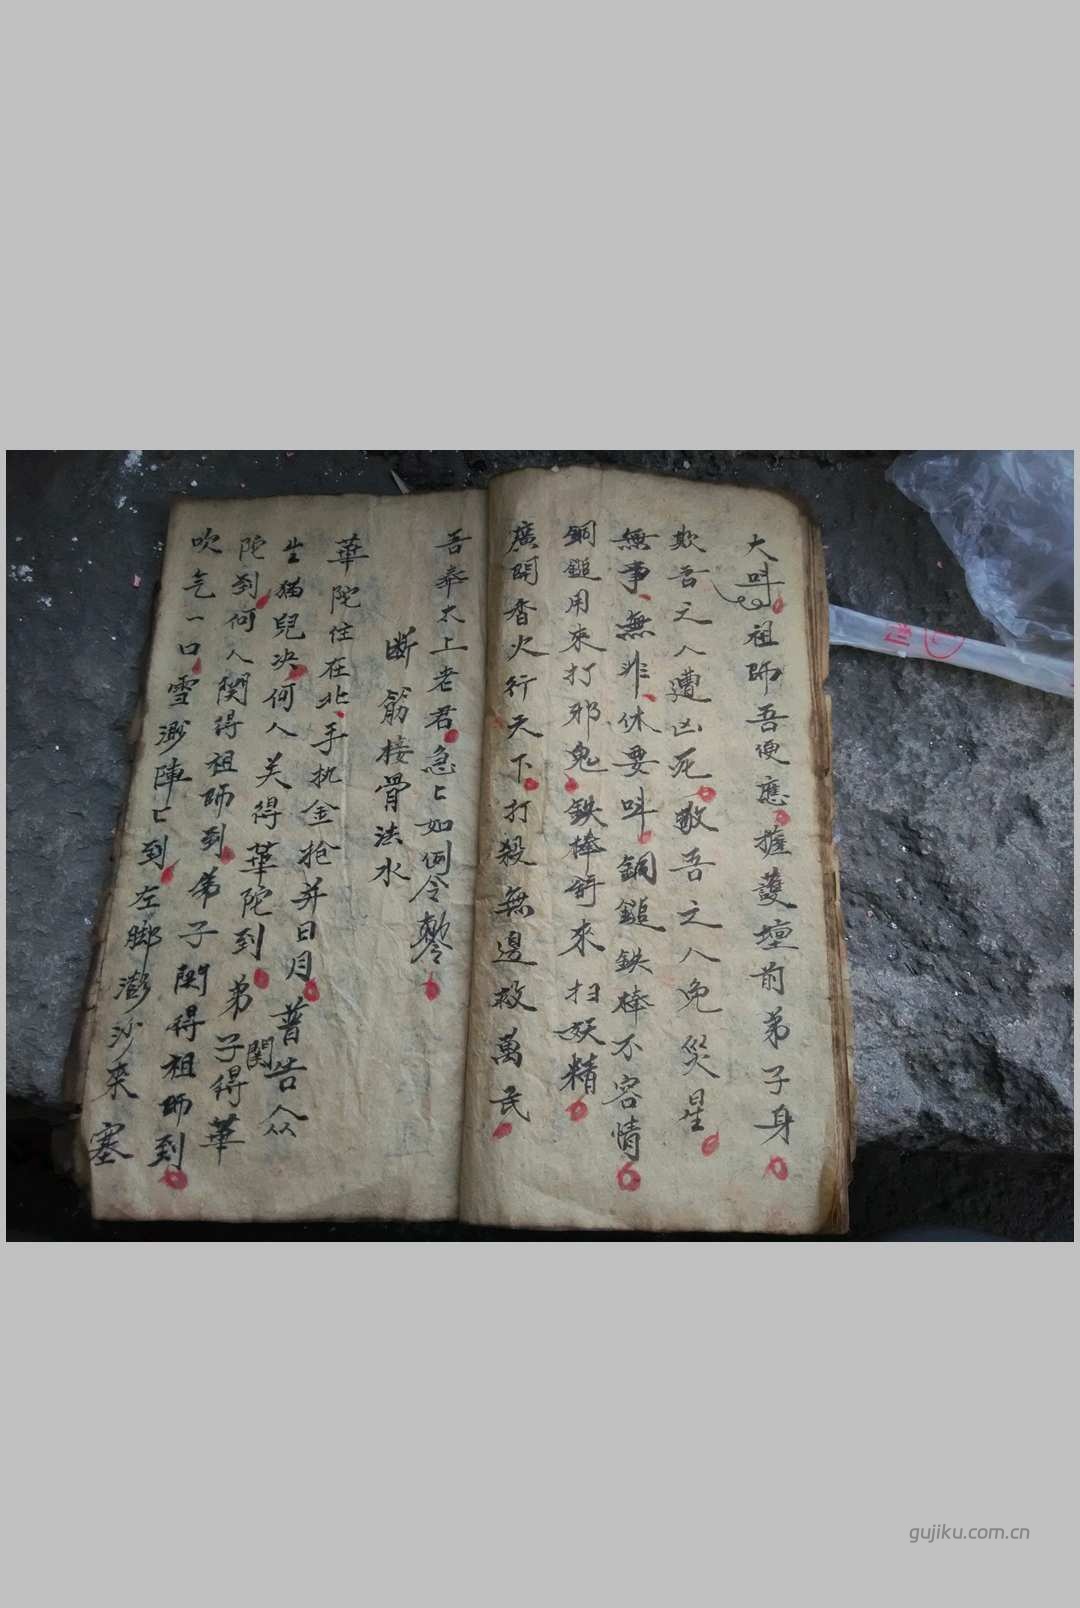 大呌祖師吾便應擁護壇前弟子身
欺吾之人遭凶死敬吾之人免災星
無事無非休要呌銅鎚鉄棒不容情
銅鎚用來打邪鬼鉄棒將來扫妖精
廣開香火行天下打殺無邉救萬民
吾奉太上老君急匕如例令
断筋接骨法水
華陀住在北手执金抢并日月普告众
生猫兒决何人关得華陀到弟子関得華
陀到何人関得祖師到弟子関得祖師到
吹气一口雪陣匕到左脚澎沙来塞
gujiku.com.cn